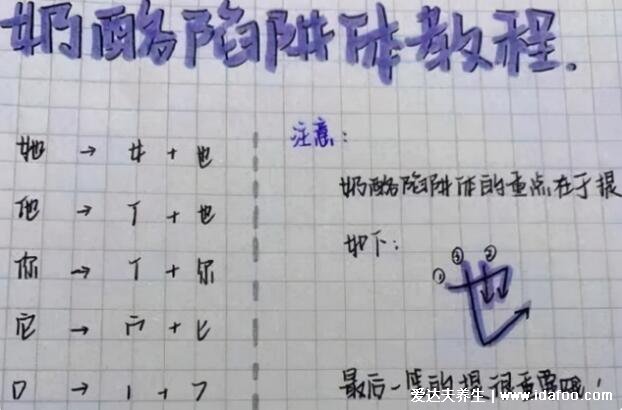 奶酪陷阱体教程.
她 → 女 + 也
他 → 亻 + 也
你 → 亻 + 尔
它 → 宀 + 匕
口 → 丨 + ㇕
注意:
奶酪陷阱体的重点在于提
如下:
① ③ ②
也
最后一笔的提很重要哦!
爱达夫养生 | www.idafoo.com